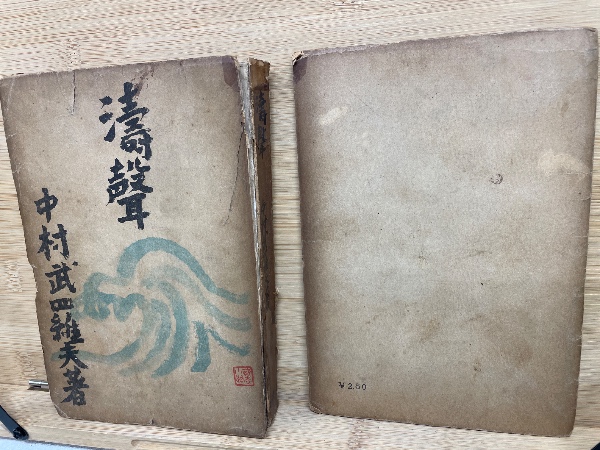 濤聲
中村武羅夫著
¥2.50